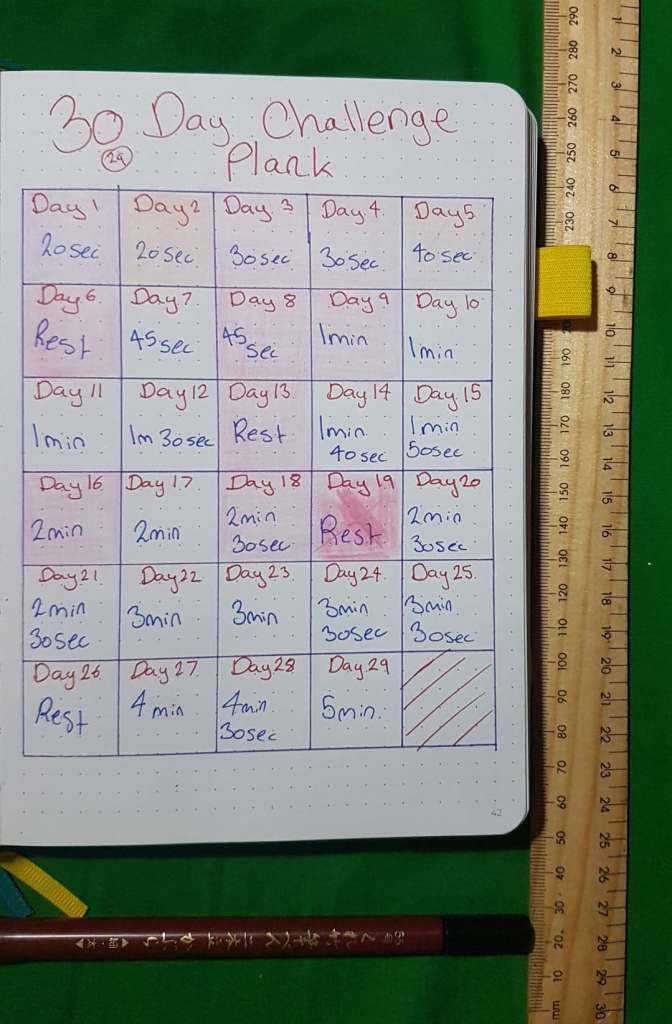 30 Day Challenge
29
Plank
Day 1
20sec
Day 2
20sec
Day 3
30sec
Day 4
30sec
Day 5
40sec
Day 6
Rest
Day 7
45sec
Day 8
45
sec
Day 9
1min
Day 10
1min
Day 11
1min
Day 12
1m 30sec
Day 13
Rest
Day 14
1min
40sec
Day 15
1min
50sec
Day 16
2min
Day 17
2min
Day 18
2min
30sec
Day 19
Rest
Day 20
2min
30sec
Day 21
2min
30sec
Day 22
3min
Day 23
3min
Day 24
3min
30sec
Day 25
3min
30sec
Day 26
Rest
Day 27
4min
Day 28
4min
30sec
Day 29
5min.
42
290
280
270
260
250
240
230
190
180
170
160
150
140
130
120
110
100
90
80
70
60
50
40
30
20
10
mm
1
2
3
4
5
6
7
8
9
10
11
12
13
14
15
16
17
18
19
20
21
22
23
24
25
26
27
28
29
30